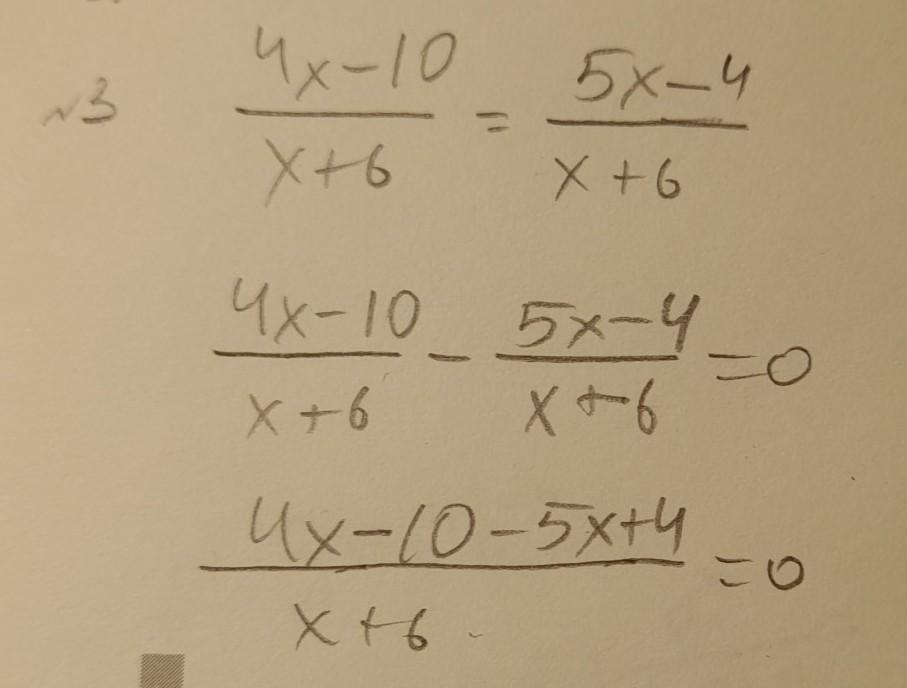 №3 (4x-10)/(x+6) = (5x-4)/(x+6)
(4x-10)/(x+6) - (5x-4)/(x+6) = 0
(4x-10-5x+4)/(x+6) = 0